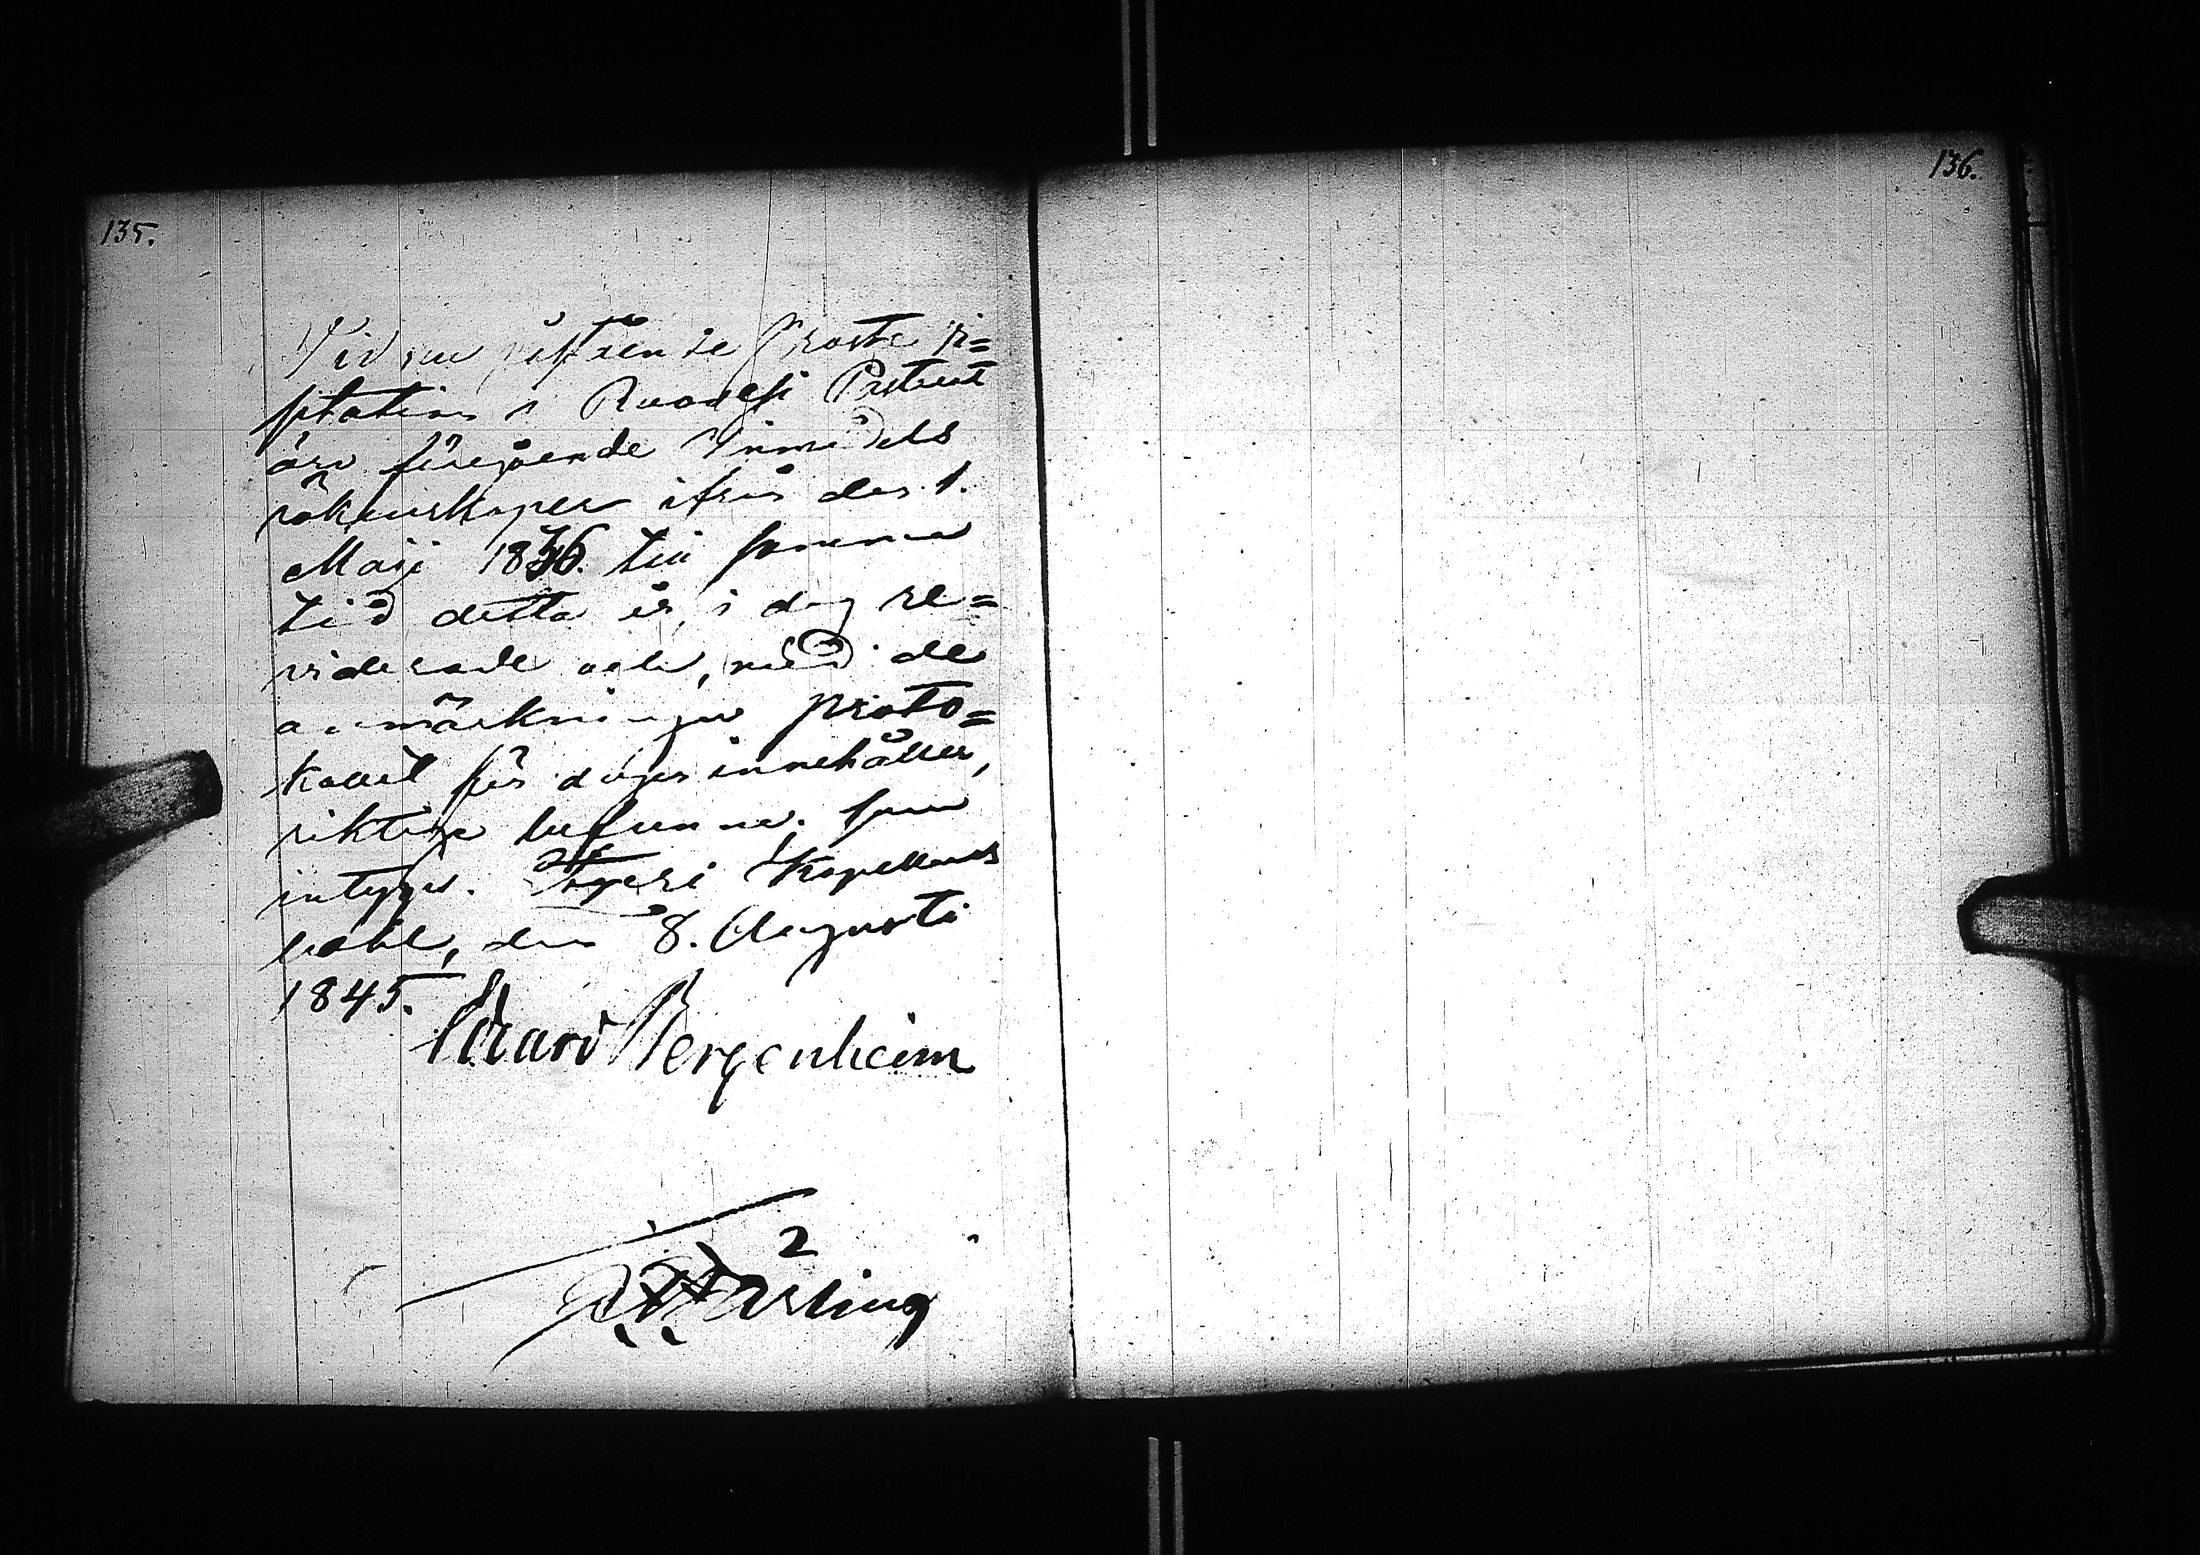 135.
136.
Vid nu påstående Proste vi=
sitation i Ruovesi Pastorat
äro föregående Inventarii
räkenskaper ifrån den 1.
Maji 1836. till samma
tid detta år, i dag re=
viderade och, med de
anmärkningar proto=
kollet för dagen innehåller,
riktiga befunne. som
intygas. Kapellans
bohl, den 8. Augusti
1845.
Edvard Bergenheim
2